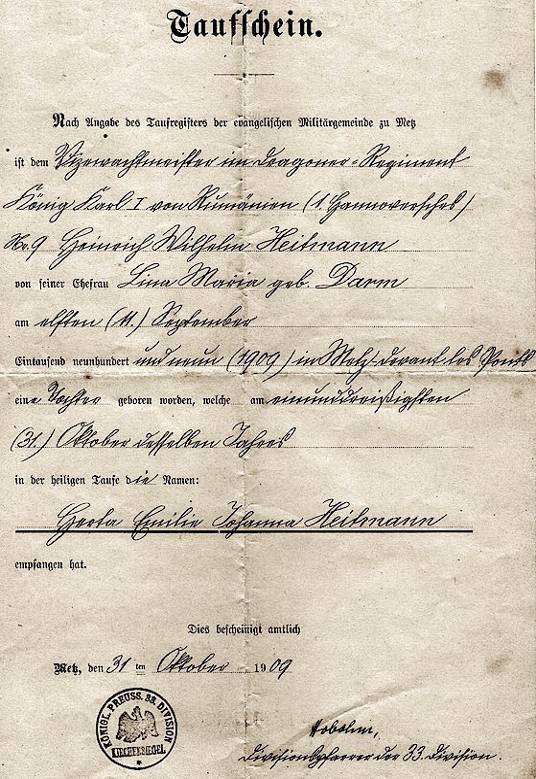 Taufschein.
Nach Angabe des Taufregisters der evangelischen Militärgemeinde zu Metz
ist dem Vizewachtmeister im Dragoner-Regiment
König Karl I von Rumänien (1. Hannoversches)
No. 9 Heinrich Wilhelm Heitmann
von seiner Ehefrau Lina Maria geb. Darm
am elften (11.) September
Eintausend neunhundert und neun (1909) in Metz-Devant les Ponts
eine Tochter geboren worden, welche am einunddreißigsten
(31.) Oktober desselben Jahres
in der heiligen Taufe die Namen:
Herta Emilie Johanna Heitmann
empfangen hat.
Dies bescheinigt amtlich
Metz, den 31 ten Oktober 1909
KÖNIGL. PREUSS. 33. DIVISION
KIRCHENSIEGEL
Divisionspfarrer der 33. Division.